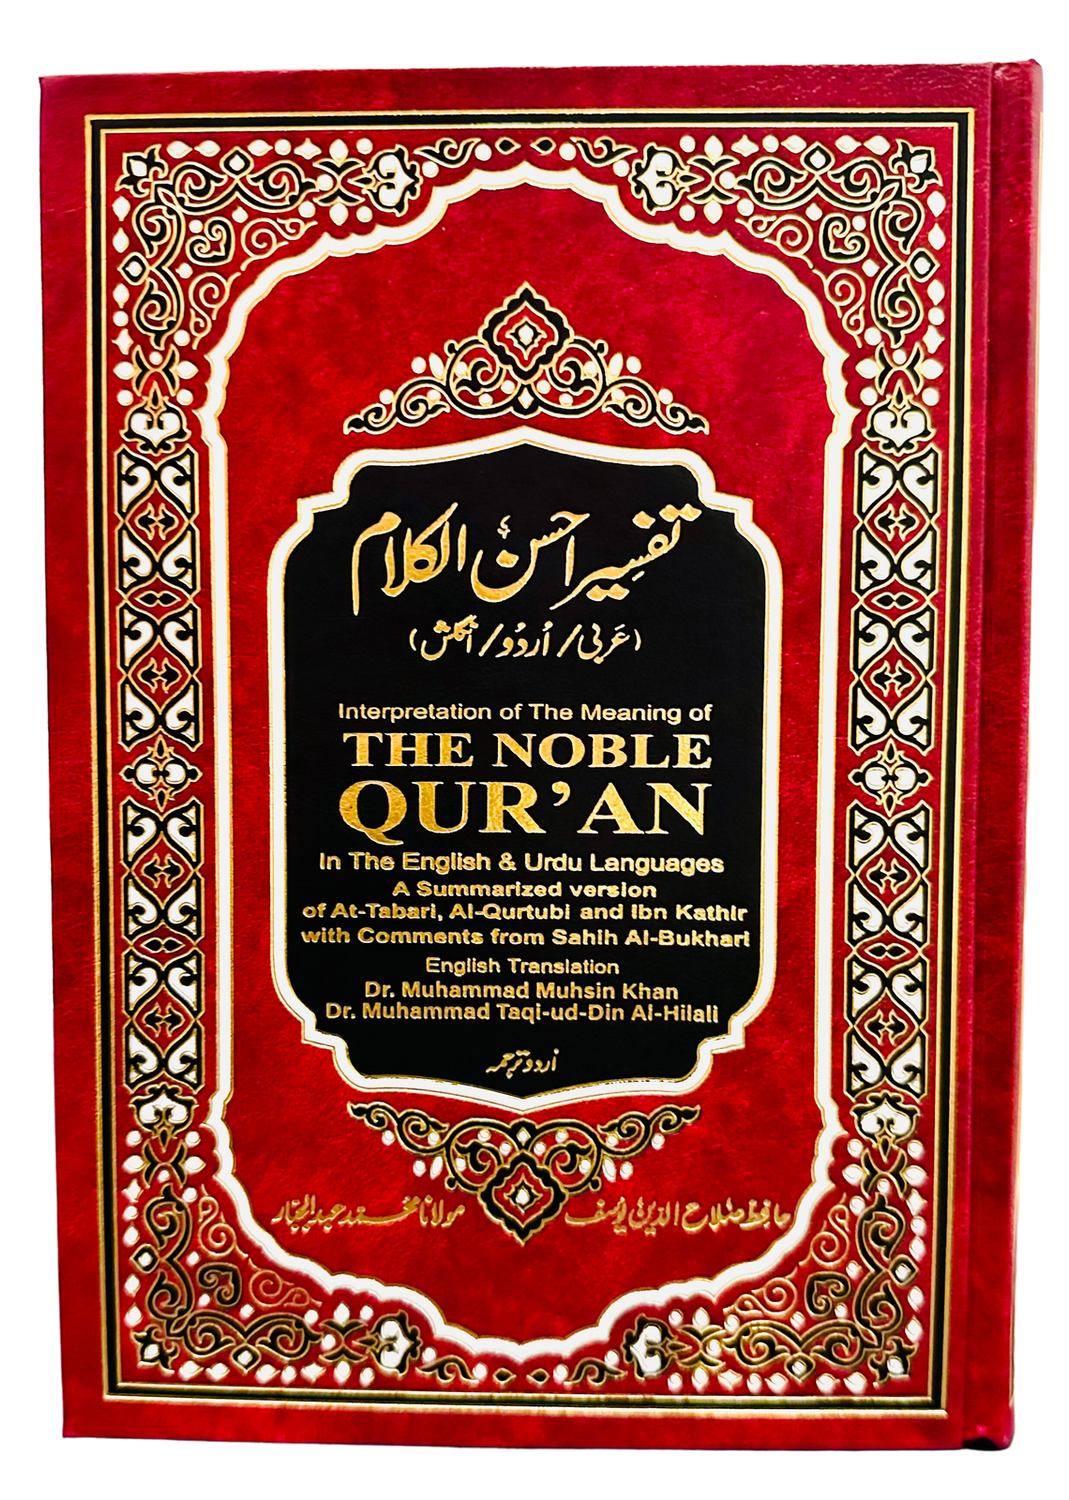 تفسیر احسن الکلام
(عَربی/اُردُو/انگلش)
Interpretation of The Meaning of
THE NOBLE
QUR'AN
In The English & Urdu Languages
A Summarized version
of At-Tabari, Al-Qurtubi and Ibn Kathir
with Comments from Sahih Al-Bukhari
English Translation
Dr. Muhammad Muhsin Khan
Dr. Muhammad Taqi-ud-Din Al-Hilali
اردو ترجمہ
حافظ صلاح الدین یوسف مولانا محمد عبدالجبار